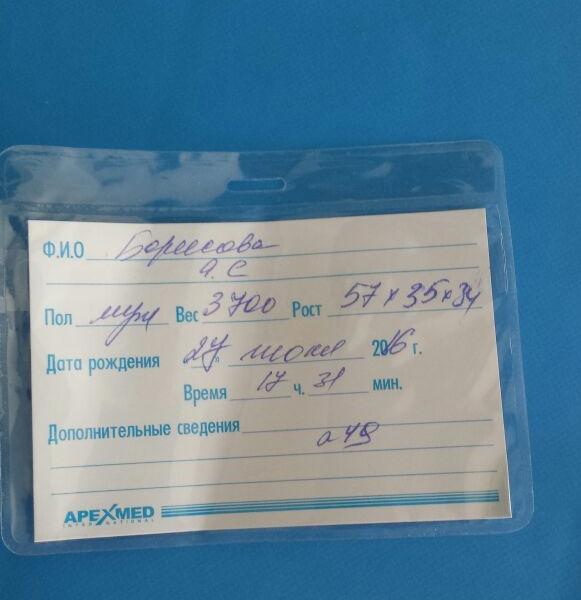 Ф.И.О Борисова
а. с
Пол муж Вес 3700 Рост 57 х 35 х 34
Дата рождения 27 июля 2016 г.
Время 17 ч. 31 мин.
Дополнительные сведения
а 49
APEXMED
INTERNATIONAL